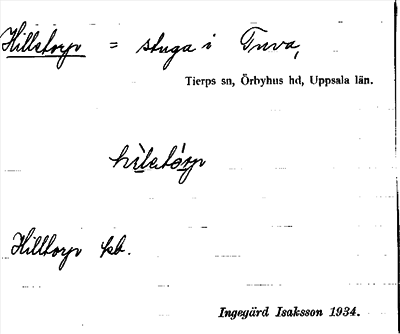 Hillstorp = stuga i Tuva,
Tierps sn, Örbyhus hd, Uppsala län.
hìlstórp
Hilltorp kb.
Ingegärd Isaksson 1934.